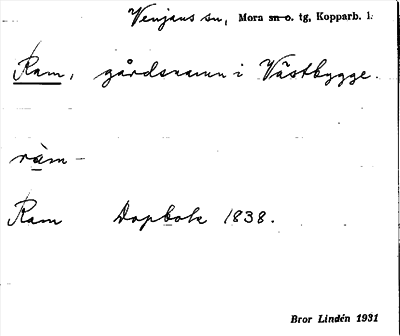 Venjans sn, Mora sn o. tg, Kopparb. l.
Ram, gårdsnamn i Västbygge.
ràm-
Ram Dopbok 1838.
Bror Lindén 1931